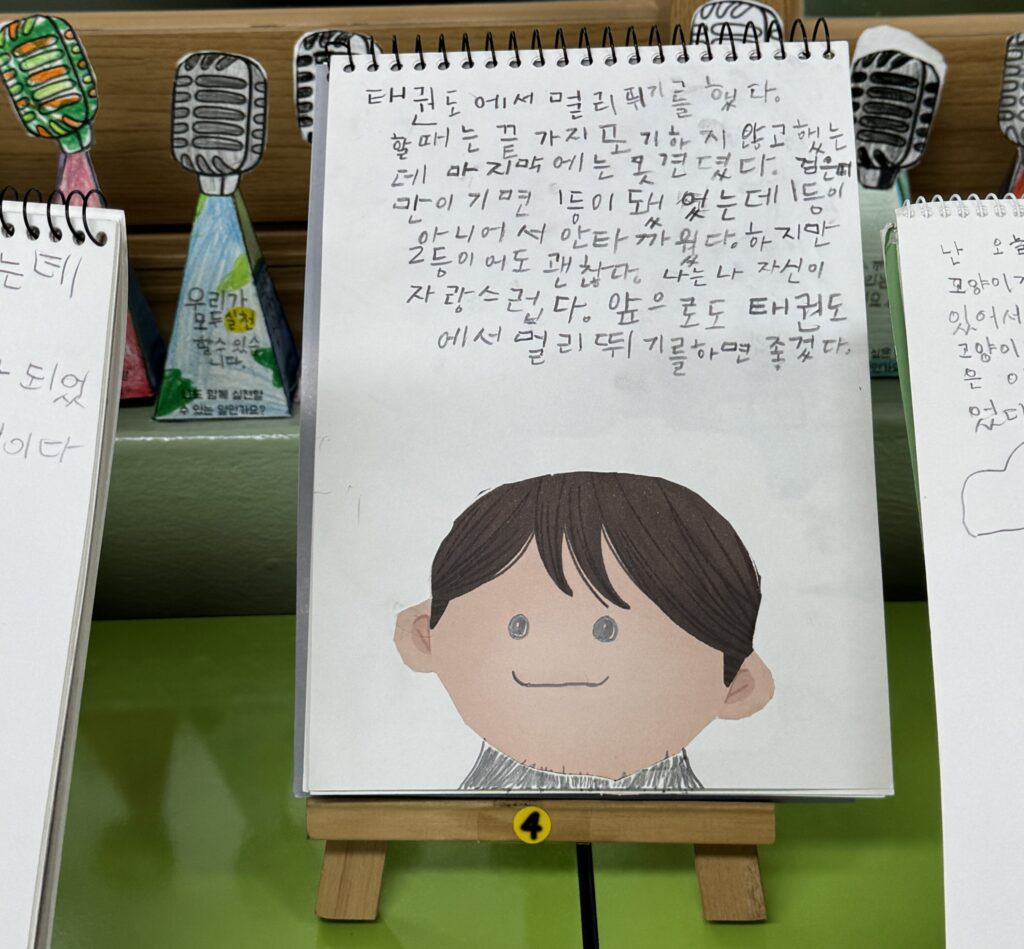 태권도에서 멀리뛰기를 했다.
할때는 끝 가지 포기하지 않고 했는
데 마지막에는 못견뎠다. 검은띠
만 이기면 1등이 됐었는데 1등이
아니어서 안타까웠다. 하지만
2등이어도 괜찮다. 나는 나 자신이
자랑스럽다. 앞으로도 태권도
에서 멀리뛰기를 하면 좋겠다.
4
우리가
모두 실천
할 수 있습
니다.
수 있는 일인가요?
는데
되었
이다
난 오늘
있어서
은
었다